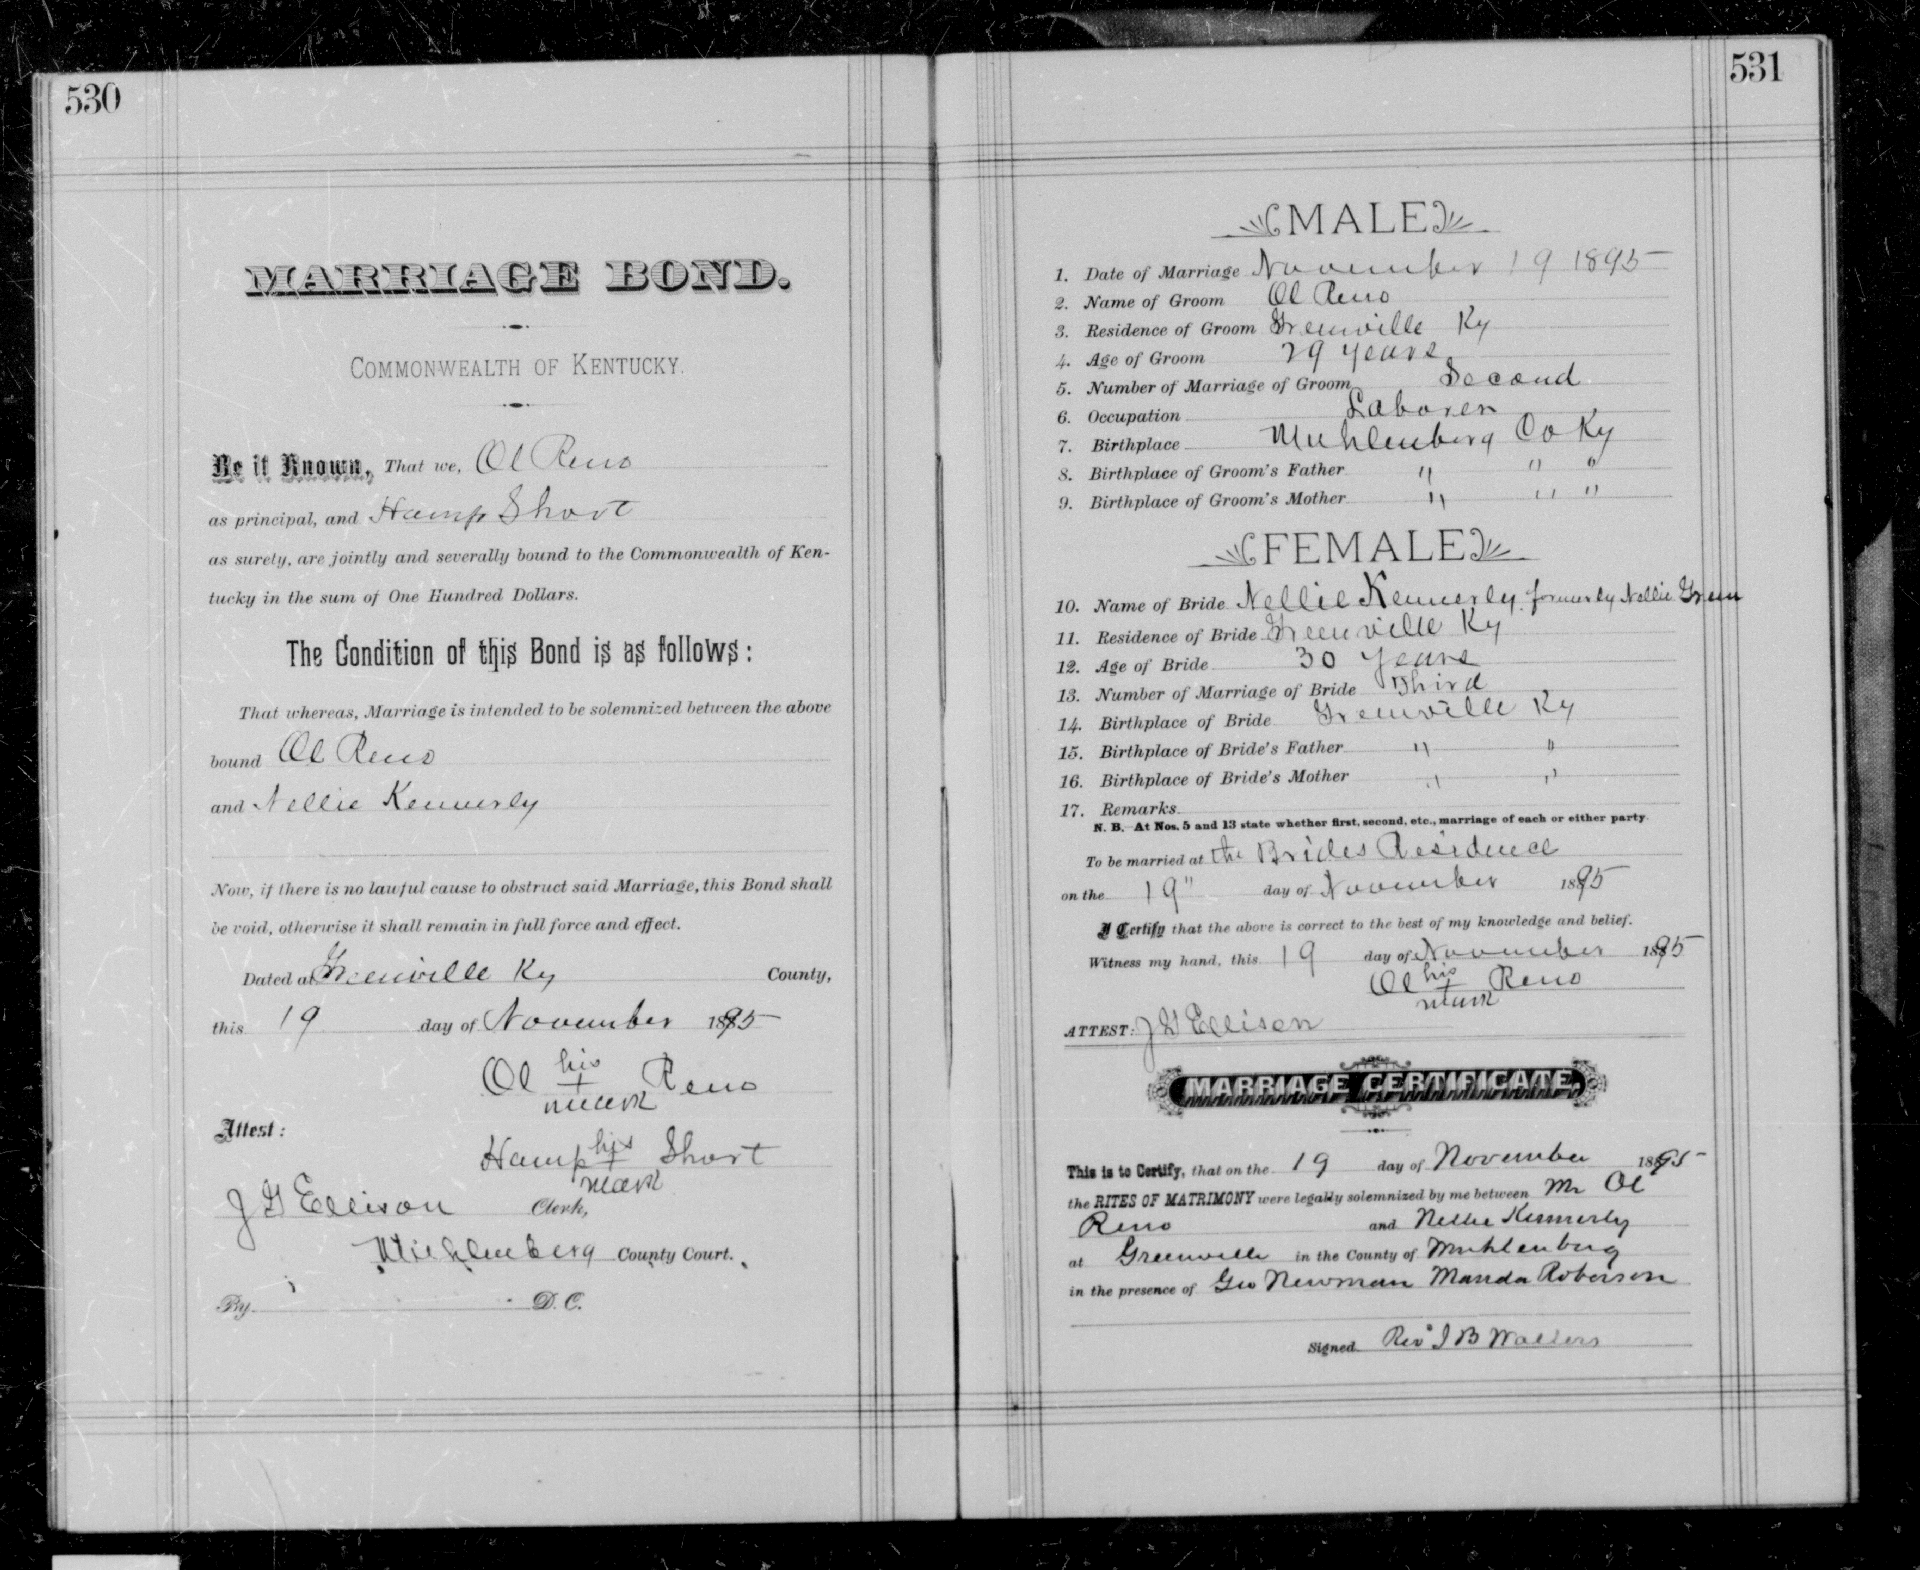 530
MARRIAGE BOND.
COMMONWEALTH OF KENTUCKY.
Be it Known, That we, Ol Reno
as principal, and Hamp Short
as surety, are jointly and severally bound to the Commonwealth of Ken-
tucky in the sum of One Hundred Dollars.
The Condition of this Bond is as follows:
That whereas, Marriage is intended to be solemnized between the above
bound Ol Reno
and Nellie Kennerly
Now, if there is no lawful cause to obstruct said Marriage, this Bond shall
be void, otherwise it shall remain in full force and effect.
Dated at Greenville Ky County,
this 19 day of November 1895
Ol his + mark Reno
Attest:
Hamp his + mark Short
J G Ellison Clerk,
Muhlenberg County Court.
By D. C.
531
MALE
1. Date of Marriage November 19 1895
2. Name of Groom Ol Reno
3. Residence of Groom Greenville Ky
4. Age of Groom 29 years
5. Number of Marriage of Groom Second
6. Occupation Laborer
7. Birthplace Muhlenberg Co Ky
8. Birthplace of Groom's Father " " "
9. Birthplace of Groom's Mother " " "
FEMALE
10. Name of Bride Nellie Kennerly formerly Nellie Green
11. Residence of Bride Greenville Ky
12. Age of Bride 30 years
13. Number of Marriage of Bride Third
14. Birthplace of Bride Greenville Ky
15. Birthplace of Bride's Father " "
16. Birthplace of Bride's Mother " "
17. Remarks
N. B. At Nos. 5 and 13 state whether first, second, etc., marriage of each or either party.
To be married at the Brides Residence
on the 19" day of November 1895
I Certify that the above is correct to the best of my knowledge and belief.
Witness my hand, this 19 day of November 1895
Ol his + mark Reno
ATTEST: J G Ellison
MARRIAGE CERTIFICATE.
This is to Certify, that on the 19 day of November 1895
the RITES OF MATRIMONY were legally solemnized by me between Mr Ol
Reno and Nellie Kennerly
at Greenville in the County of Muhlenburg
in the presence of Geo Newman Manda Roberson
Signed Rev J B Walters